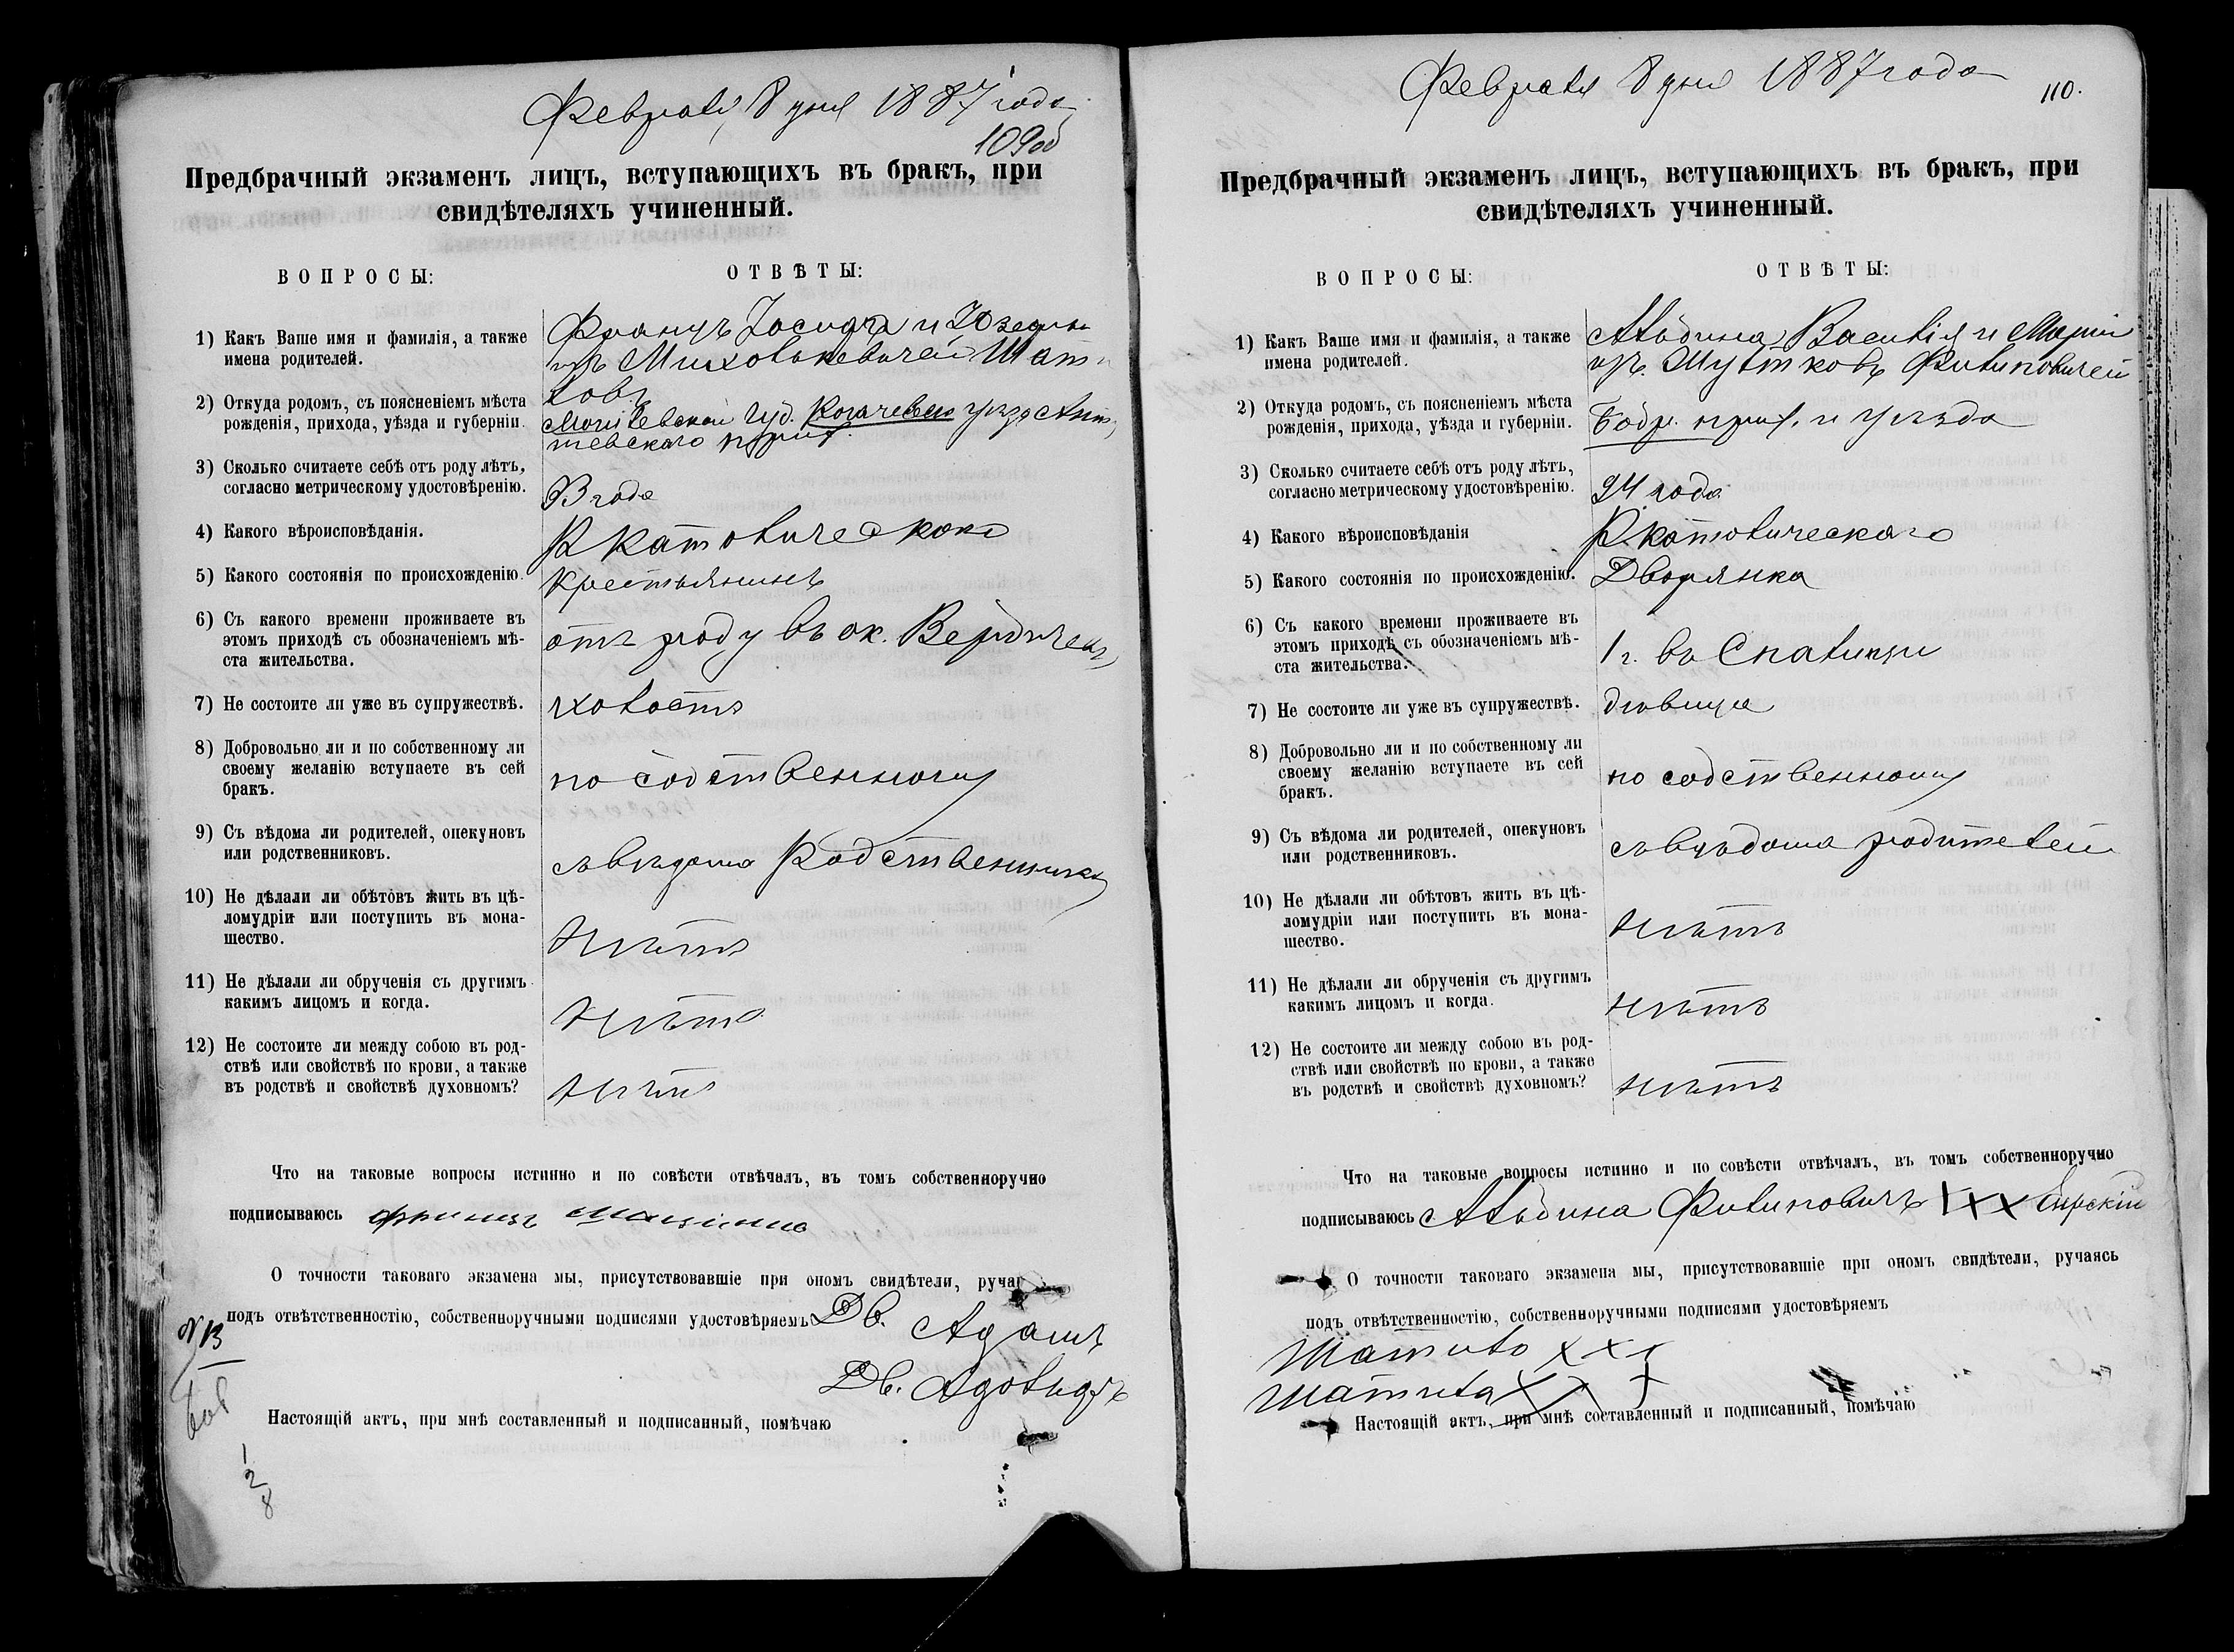 Февраля 8 дня 1887 года
109об
Предбрачный экзаменъ лицъ, вступающихъ въ бракъ, при
свидѣтеляхъ учиненный.
ВОПРОСЫ:
ОТВѢТЫ:
1) Какъ Ваше имя и фамилія, а также
имена родителей.
Францъ Іосифа и Юзефы
изъ Михолькевичей Шат
ковъ
2) Откуда родомъ, съ поясненіемъ мѣста
рожденія, прихода, уѣзда и губерніи.
Могилевской губ. уѣзда
прих.
3) Сколько считаете себѣ отъ роду лѣтъ,
согласно метрическому удостовѣренію.
года
4) Какого вѣроисповѣданія.
Р Католическаго
5) Какого состоянія по происхожденію.
крестьянинъ
6) Съ какого времени проживаете въ
этомъ приходѣ съ обозначеніемъ мѣ-
ста жительства.
отъ роду въ ок.
7) Не состоите ли уже въ супружествѣ.
холостъ
8) Добровольно ли и по собственному ли
своему желанію вступаете въ сей
бракъ.
по собственному
9) Съ вѣдома ли родителей, опекуновъ
или родственниковъ.
съ вѣдома Родственниковъ
10) Не дѣлали ли обѣтовъ жить въ цѣ-
ломудріи или поступить въ мона-
шество.
нѣтъ
11) Не дѣлали ли обрученія съ другимъ
какимъ лицомъ и когда.
нѣтъ
12) Не состоите ли между собою въ род-
ствѣ или свойствѣ по крови, а также
въ родствѣ и свойствѣ духовномъ?
нѣтъ
Что на таковые вопросы истинно и по совѣсти отвѣчалъ, въ томъ собственноручно
подписываюсь
О точности таковаго экзамена мы, присутствовавшіе при ономъ свидѣтели, руча
подъ отвѣтственностію, собственноручными подписями удостовѣряемъ Дв. Адамъ
Дв. Адольфъ
Настоящій актъ, при мнѣ составленный и подписанный, помѣчаю
Февраля 8 дня 1887 года
110.
Предбрачный экзаменъ лицъ, вступающихъ въ бракъ, при
свидѣтеляхъ учиненный.
ВОПРОСЫ:
ОТВѢТЫ:
1) Какъ Ваше имя и фамилія, а также
имена родителей.
Альбина Василія и Маріи
изъ Шутковъ Филиповичей
2) Откуда родомъ, съ поясненіемъ мѣста
рожденія, прихода, уѣзда и губерніи.
Бобр. прих. и уѣзда
3) Сколько считаете себѣ отъ роду лѣтъ,
согласно метрическому удостовѣренію.
24 года
4) Какого вѣроисповѣданія
Р. Католическаго
5) Какого состоянія по происхожденію.
Дворянка
6) Съ какого времени проживаете въ
этомъ приходѣ съ обозначеніемъ мѣ-
ста жительства.
1 г. въ
7) Не состоите ли уже въ супружествѣ.
дѣвица
8) Добровольно ли и по собственному ли
своему желанію вступаете въ сей
бракъ.
по собственному
9) Съ вѣдома ли родителей, опекуновъ
или родственниковъ.
съ вѣдома родителей
10) Не дѣлали ли обѣтовъ жить въ цѣ-
ломудріи или поступить въ мона-
шество.
нѣтъ
11) Не дѣлали ли обрученія съ другимъ
какимъ лицомъ и когда.
нѣтъ
12) Не состоите ли между собою въ род-
ствѣ или свойствѣ по крови, а также
въ родствѣ и свойствѣ духовномъ?
нѣтъ
Что на таковые вопросы истинно и по совѣсти отвѣчалъ, въ томъ собственноручно
подписываюсь Альбина Филиповичъ XXX
О точности таковаго экзамена мы, присутствовавшіе при ономъ свидѣтели, ручаясь
подъ отвѣтственностію, собственноручными подписями удостовѣряемъ
Шатило XXX
Шатило XXX
Настоящій актъ, при мнѣ составленный и подписанный, помѣчаю